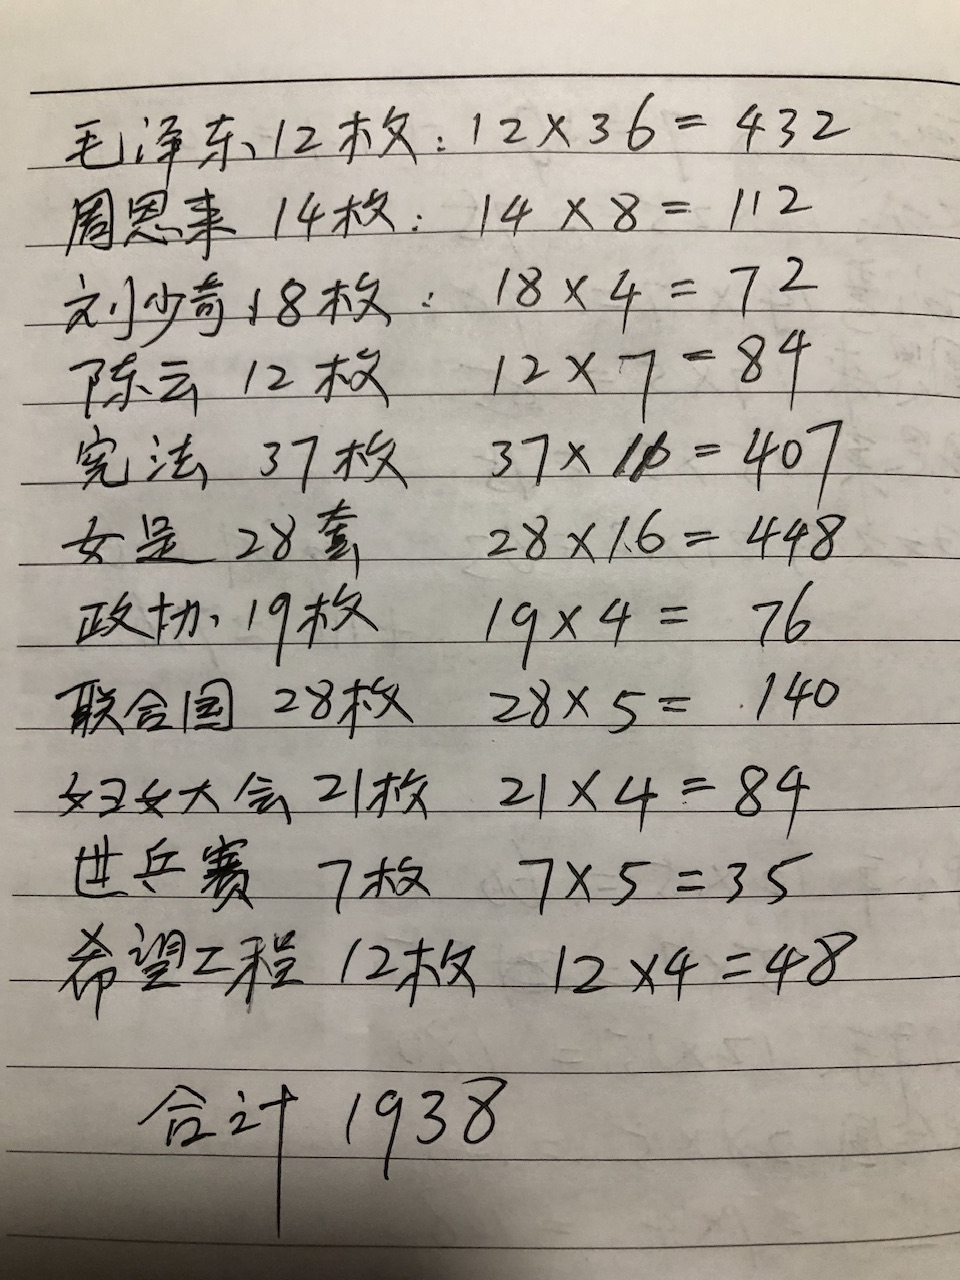 毛泽东12枚:12×36=432
周恩来 14枚: 14×8=112
刘少奇18枚: 18×4=72
陈云 12枚 12×7=84
宪法 37枚 37×11=407
女足 28套 28×16=448
政协、19枚 19×4= 76
联合国 28枚 28×5= 140
妇女大会 21枚 21×4=84
世乒赛 7枚 7×5=35
希望工程 12枚 12×4=48
合计 1938